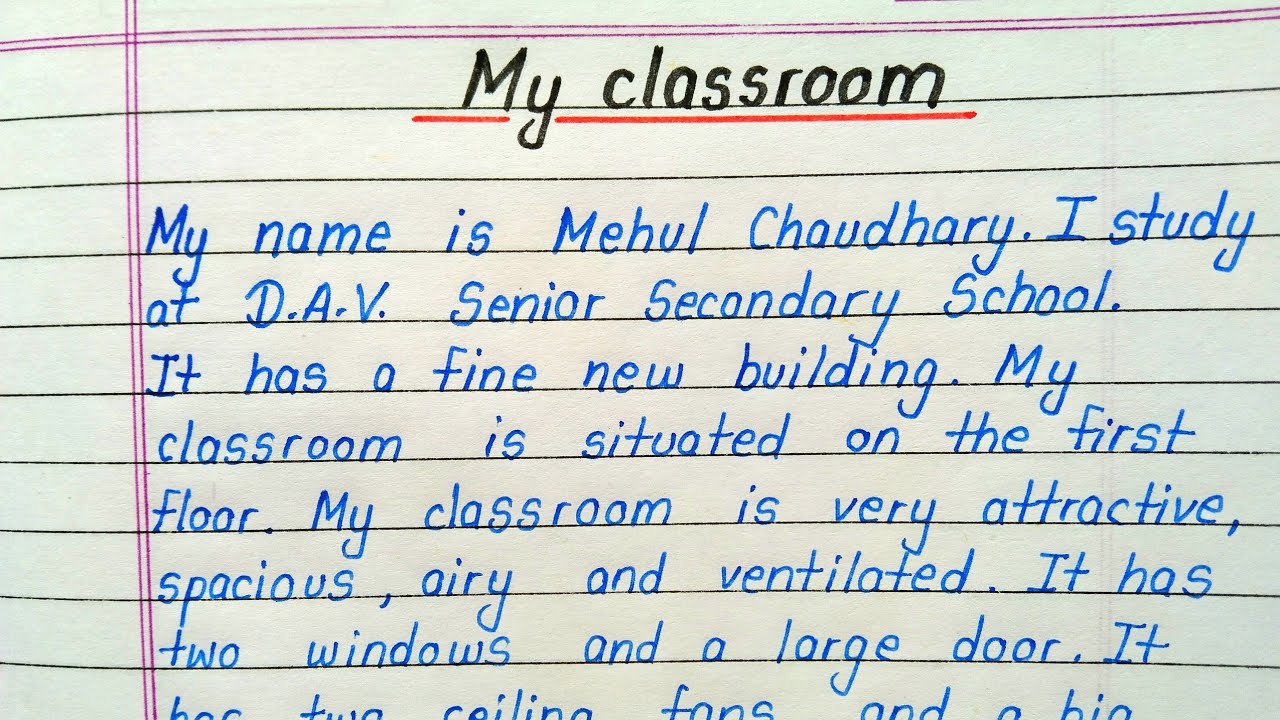 My classroom
My name is Mehul Chaudhary. I study
at D.A.V. Senior Secondary School.
It has a fine new building. My
classroom is situated on the first
floor. My classroom is very attractive,
spacious, airy and ventilated. It has
two windows and a large door. It
has two ceiling fans and a big